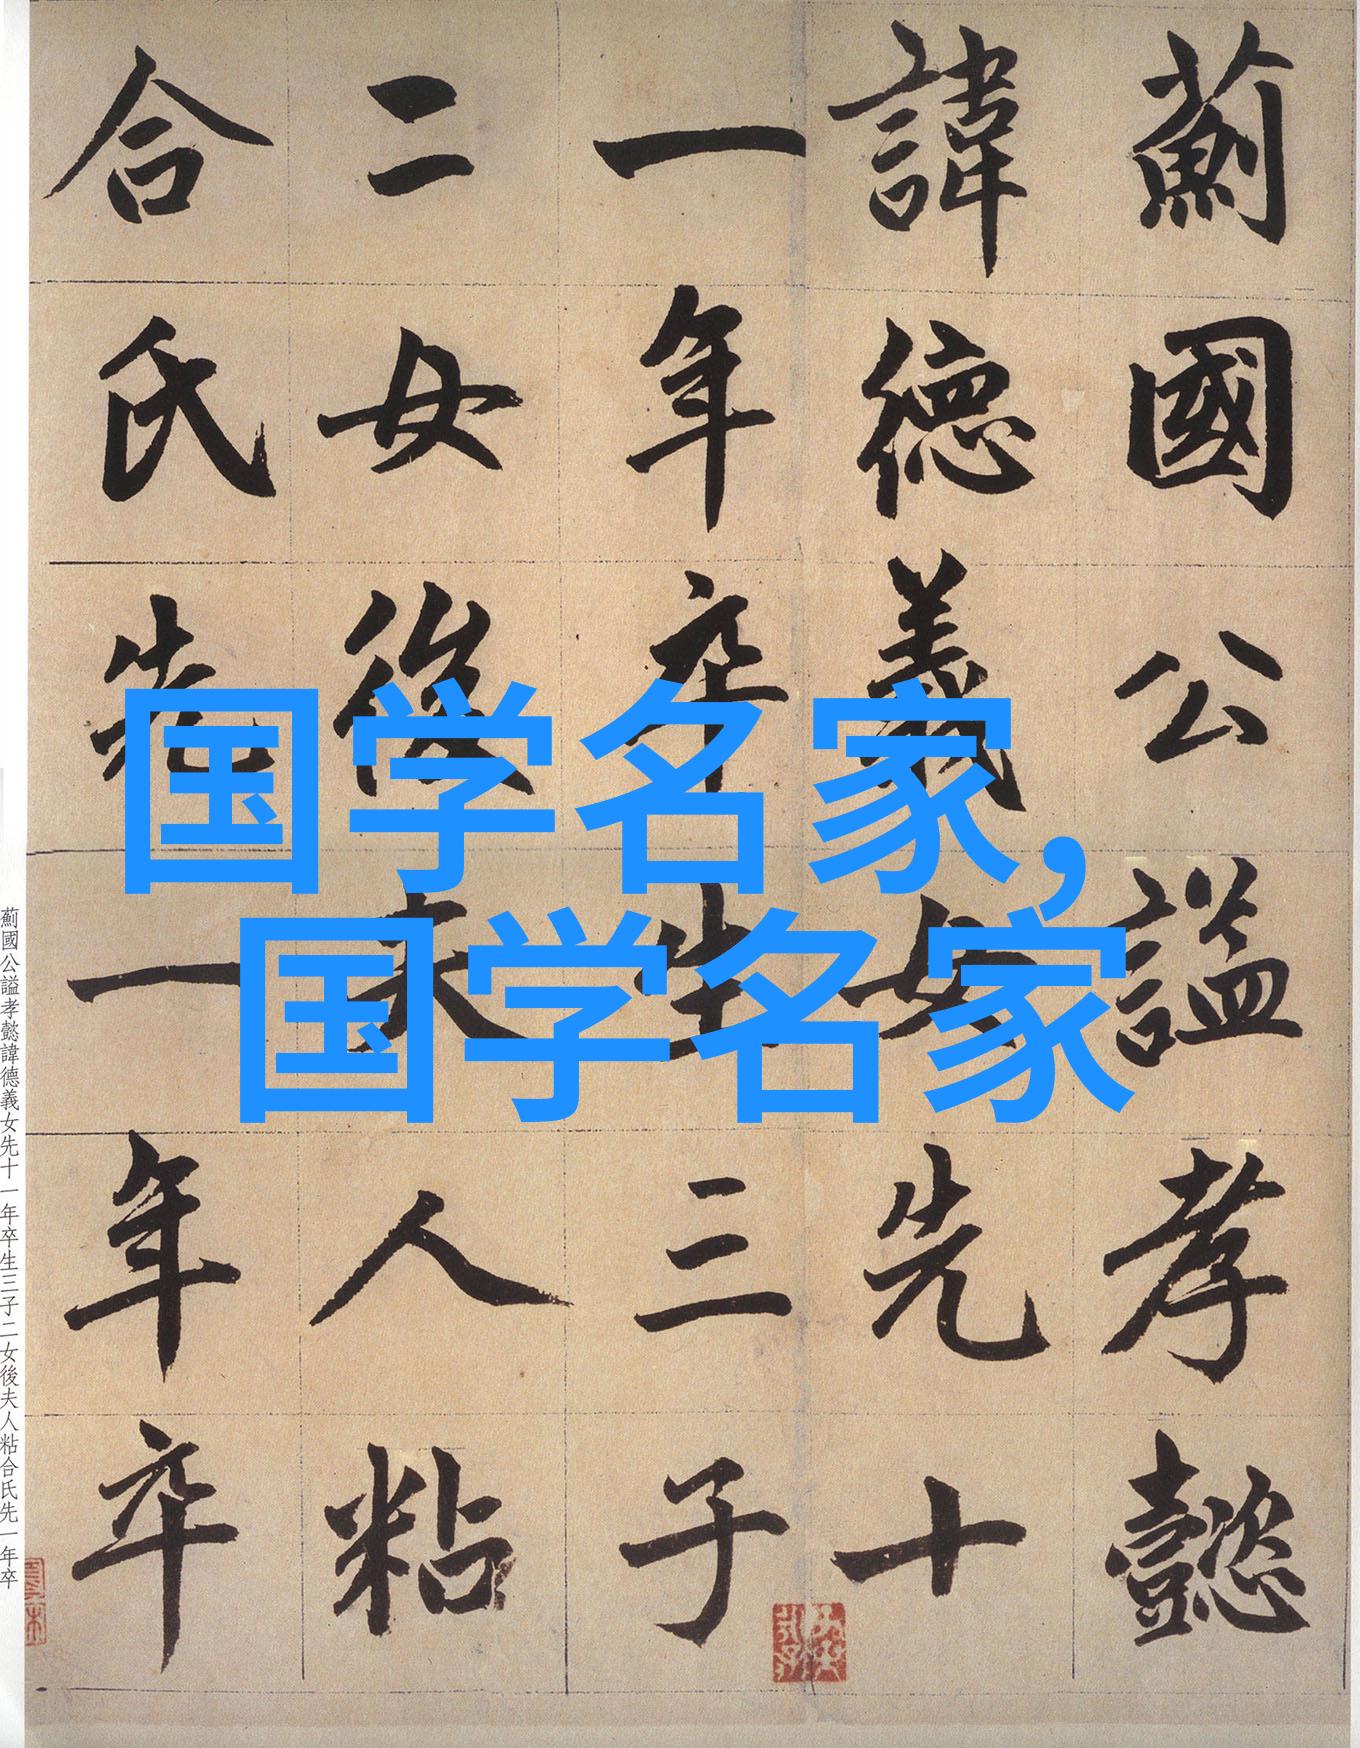 薊國公謚孝懿
諱德義女先十
一年卒生三子
二女後夫人粘
合氏先一年卒
国学名家,
国学名家
薊國公謚孝懿諱德義女先十一年卒生三子二女後夫人粘合氏先一年卒